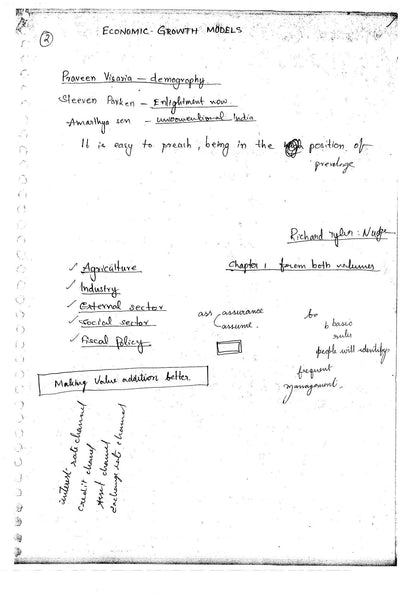 2
ECONOMIC-GROWTH MODELS
Praveen Visaria - demography.
Steeven Parken - Enlightment now.
Amarthya sen - unconventional India
It is easy to preach, being in the position of
previlage
Richard Tylor: Nudge
✓ Agriculture
Chapter 1 from both volumes
✓ Industry
✓ External sector
✓ Social sector
✓ Fiscal Policy
ass assurance
assume.
6 basic
rules
people will identify
frequent
management.
Making Value addition better
interest rate channel
credit channel
Asset channel
Exchange rate channel